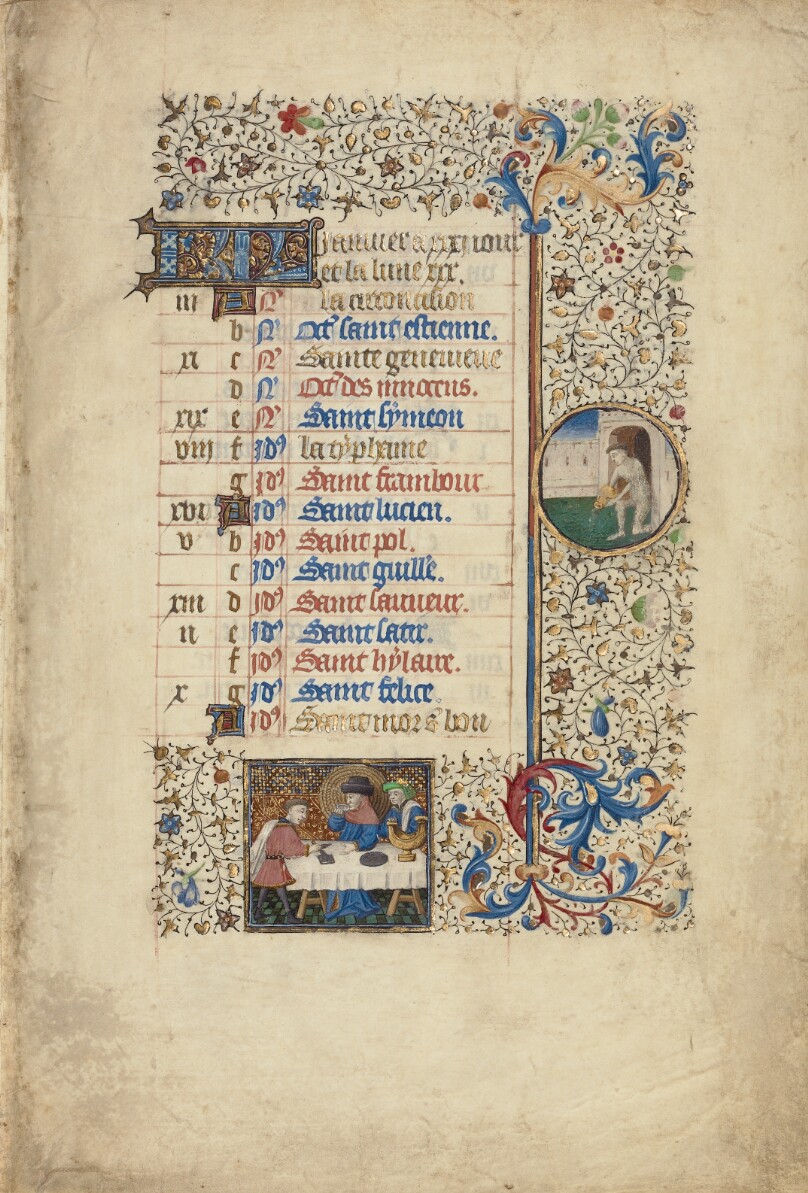 KL Januier a xxxi iour
et la lune xxx.
iii A N la circoncision
b N Oct saint estienne.
xi c N Sainte geneuieue
d N Oct des innocens.
xix e N Saint symeon
viii f Id9 la typhaine
g Id9 Saint frambour
xvi A Id9 Saint lucien.
v b Id9 Saint pol.
c Id9 Saint guille.
xiii d Id9 Saint sauueur.
ii e Id9 Saint satir.
f Id9 Saint hylaire.
x g Id9 Saint felice.
A Id9 Saint mor s bon